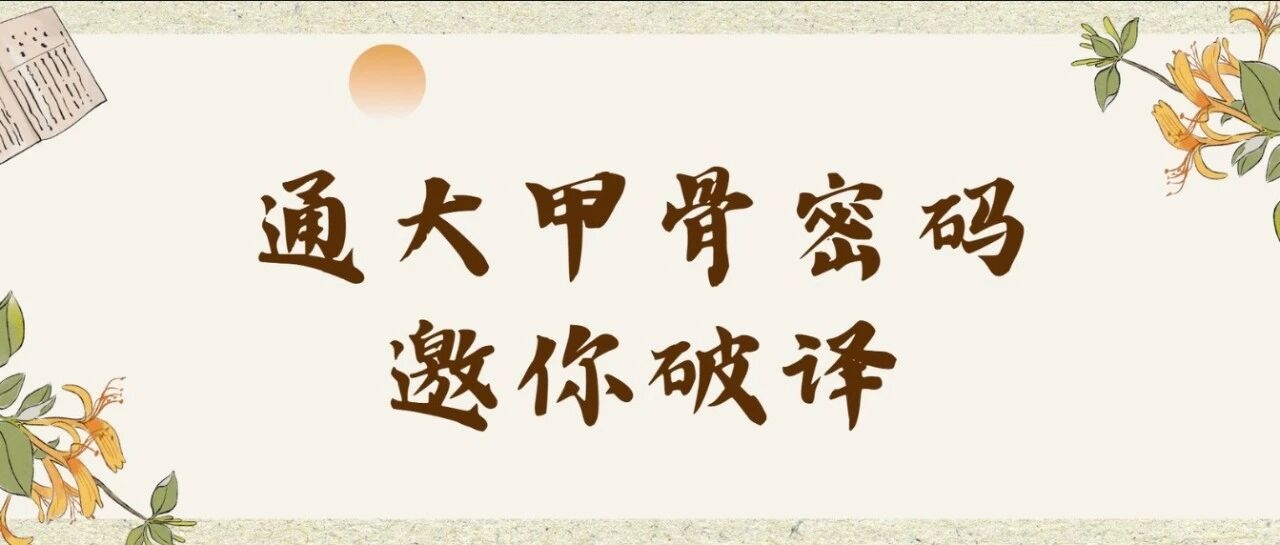 通大甲骨密码
邀你破译